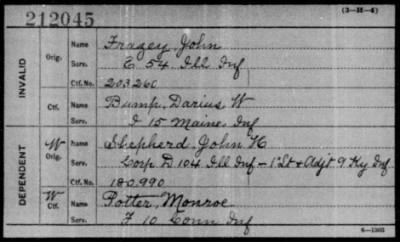 212045
(3-H-4)
INVALID
Orig.
Name Frazey, John
Serv. E 54 Ill Inf
Ctf. No. 203260
Ctf.
Name Bump, Darius W
Serv. I 15 Maine Inf
DEPENDENT
W Orig.
Name Shepherd, John K
Serv. Corp D 104 Ill Inf - 1 Lt & Adjt 9 Ky Inf
Ctf. No. 180.990
W Ctf.
Name Potter, Monroe
Serv. F 10 Conn Inf